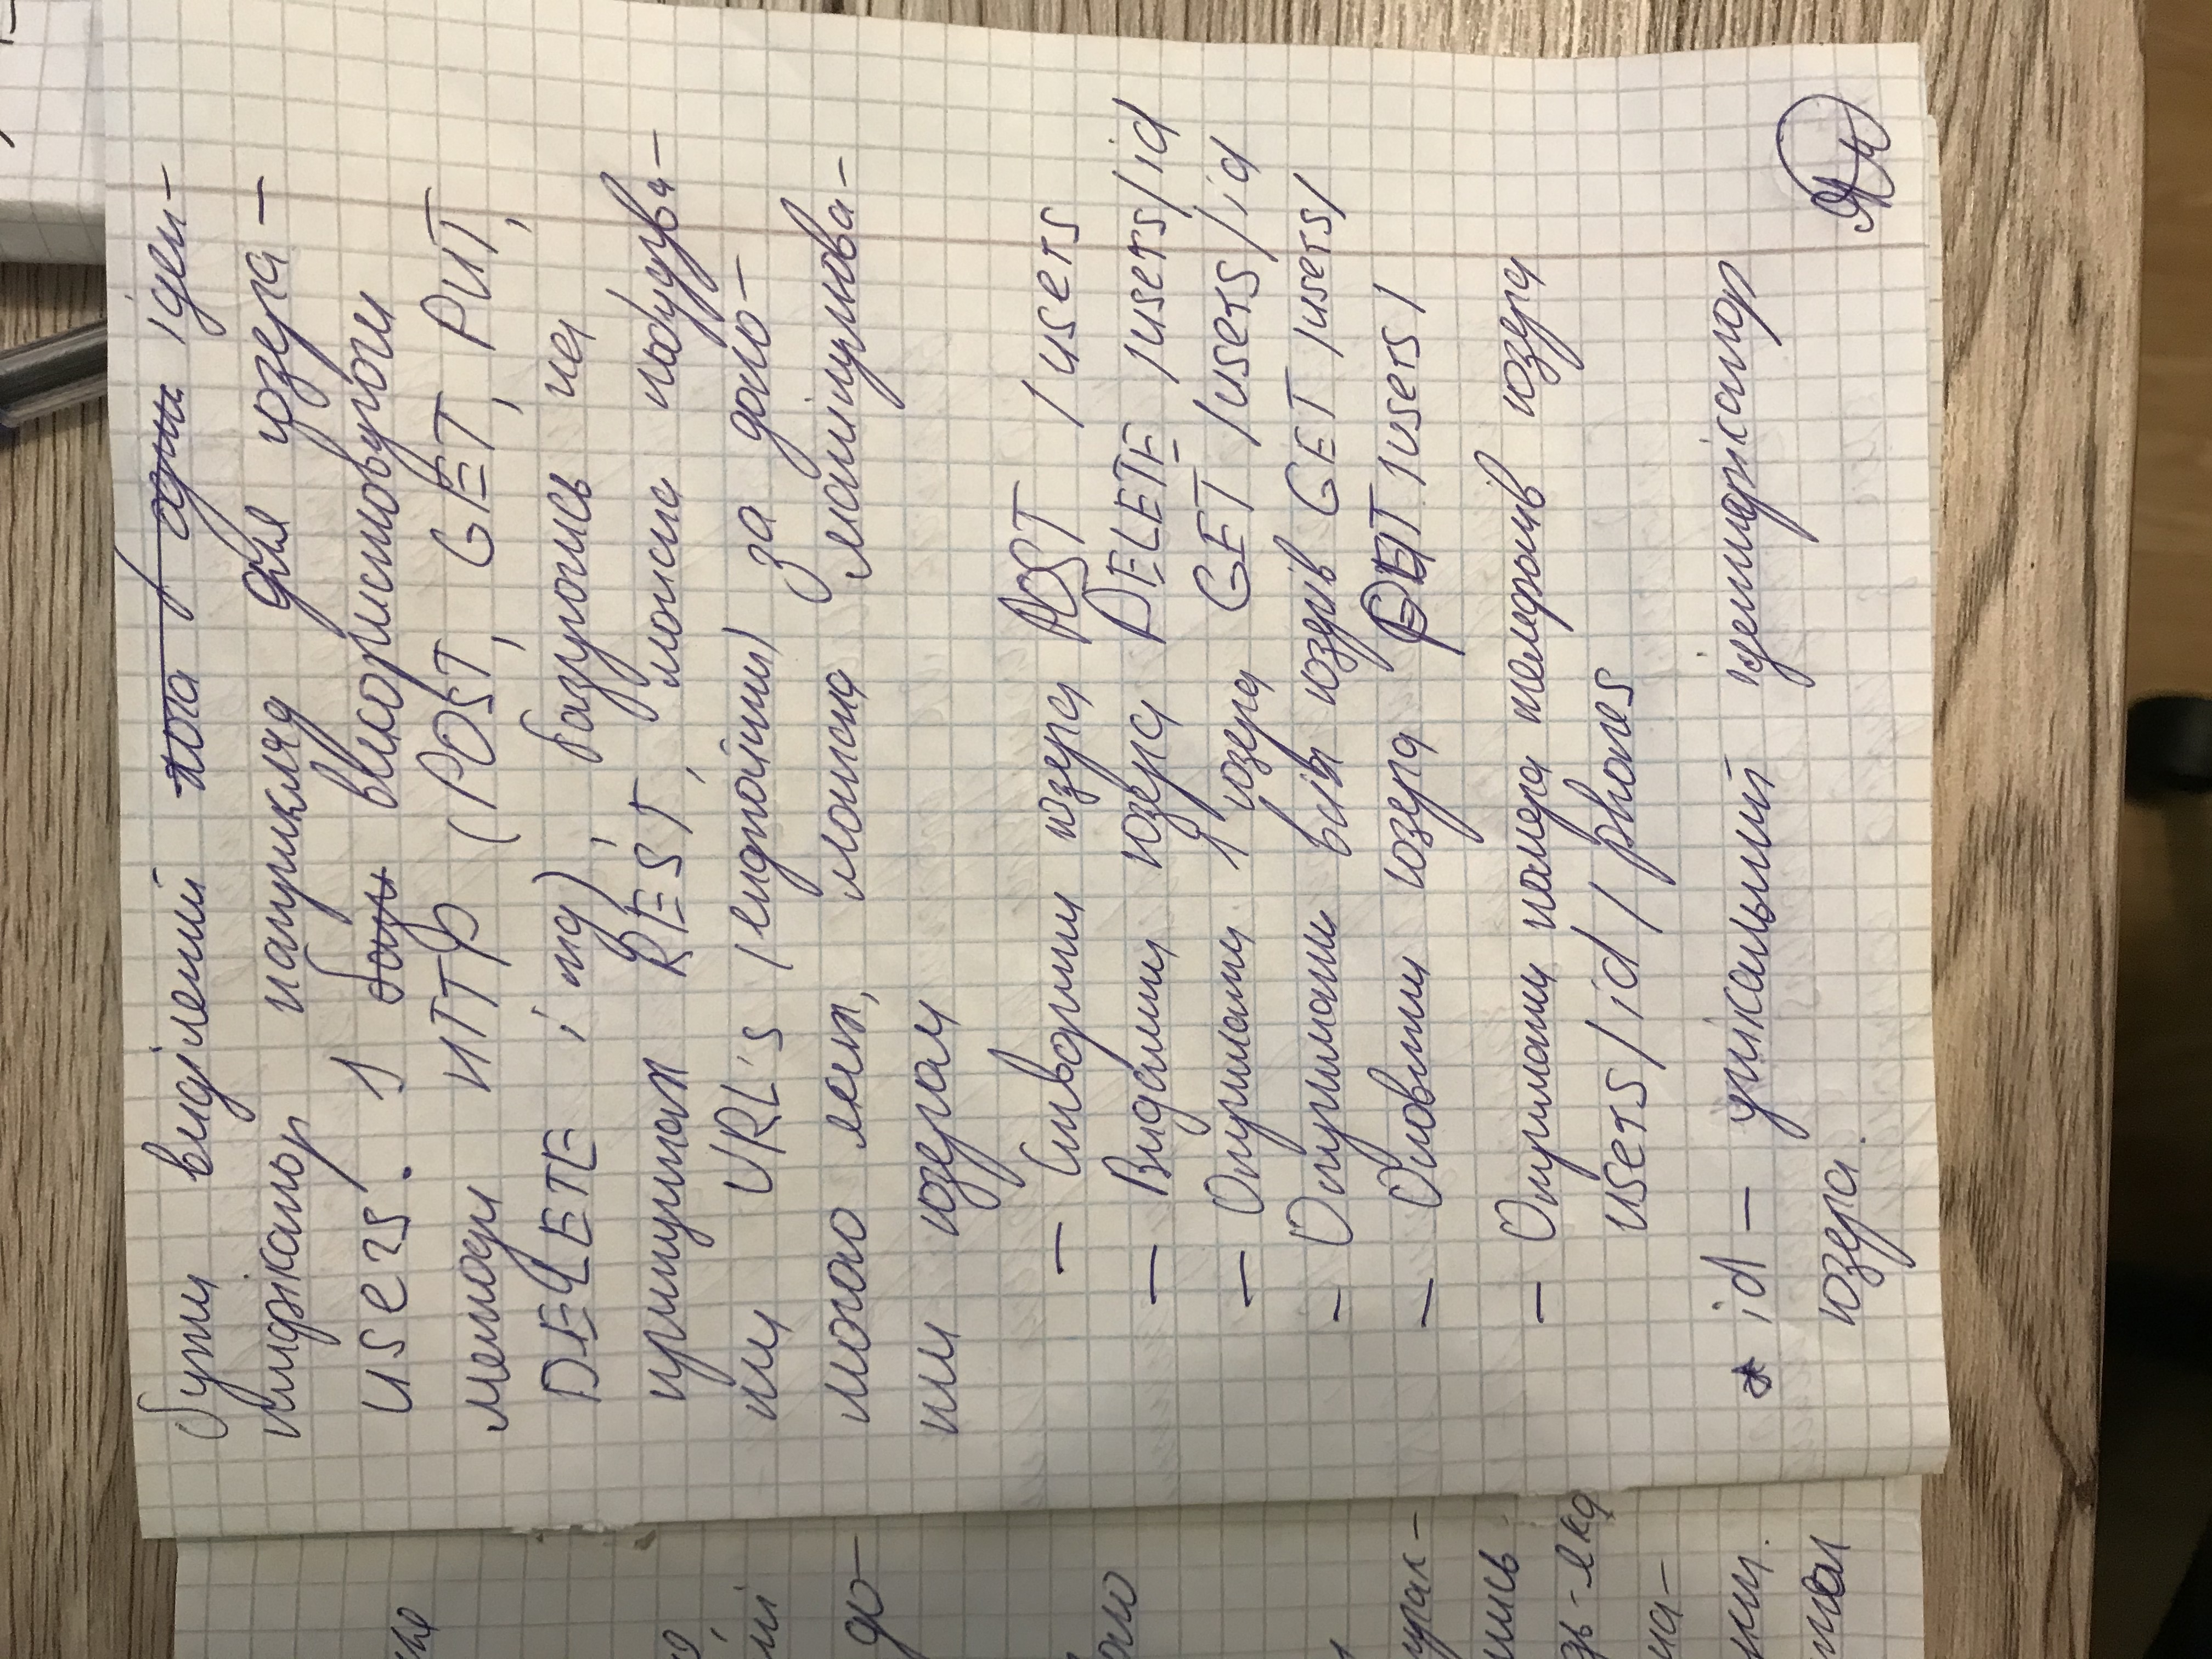 бути виділений хоча б один іден-
тифікатор наприклад для юзера -
users. І бази використовуючи
методи HTTP (POST, GET, PUT,
DELETE і тд), базуючись на
принципах REST, можна побудува-
ти URL's (ендпойнти) за допо-
могою яких, можна маніпулюва-
ти юзером
- Створити юзера POST /users
- Видалити юзера DELETE /users/id
- Отримати 1 юзера GET /users/id
- Отримати всіх юзерів GET /users/
- Оновити юзера PUT /users/
- Отримати номера телефонів юзера
users/id/phones
* id - унікальний ідентифікатор
юзера.
до-
прак-
лись
дь-яка
на-